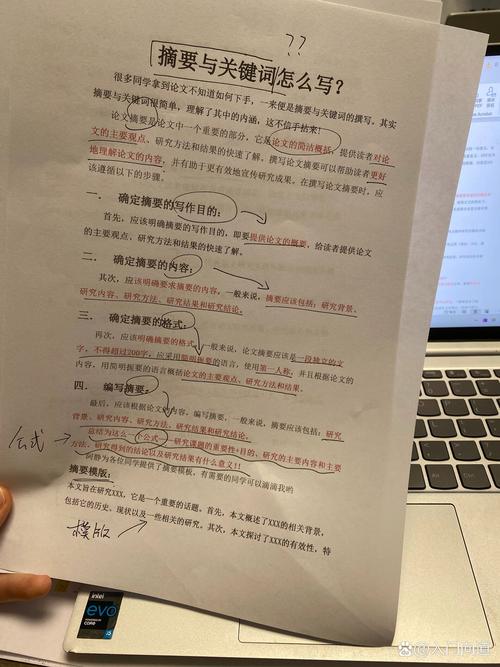 ??
摘要与关键词怎么写?
很多同学拿到论文不知道如何下手,一来便是摘要与关键词的撰写。其实
摘要与关键词很简单,理解了其中的内涵,这不信手拈来!
论文摘要是论文中一个重要的部分,它是论文的简洁概括,提供读者对论
文的主要观点、研究方法和结果的快速了解。撰写论文摘要可以帮助读者更好
地理解论文的内容,并有助于更有效地宣传研究成果。在撰写论文摘要时,应
该遵循以下的步骤。
一. 确定摘要的写作目的:
首先,应该明确摘要的写作目的,即要提供论文的概要,给读者提供论文
的主要观点、研究方法和结果的快速了解。
二. 确定摘要的内容:
其次,应该明确要求摘要的内容,一般来说,摘要应该包括:研究背景、
研究内容、研究方法、研究结果和研究结论。
三. 确定摘要的格式:
再次,应该明确摘要的格式,一般来说,论文摘要应该是一段独立的文
字,不得超过200字,应采用简明扼要的语言,使用第一人称,并且根据论文的
内容,用简明扼要的语言概括论文的主要观点、研究方法和结果。
四. 编写摘要:
最后,应该根据论文的内容,编写摘要,一般来说,摘要应该包括:研究
背景、研究内容、研究方法、研究结果和研究结论。
公式
总结为这么一个公式——研究课题的重要性+目的、研究的主要内容和主要
方法、研究得到的结论以及研究结果有什么意义!!
何静为各位同学提供了摘要模板,有需要的同学可以滴滴我哟
摘要模版:
本文旨在研究XXX,它是一个重要的话题。首先,本文概述了XXX的相关背景,
包括它的历史、现状以及一些相关的研究。其次,本文探讨了XXX的有效性,特
模版
intel
evo
POWERED BY
CORE
i5